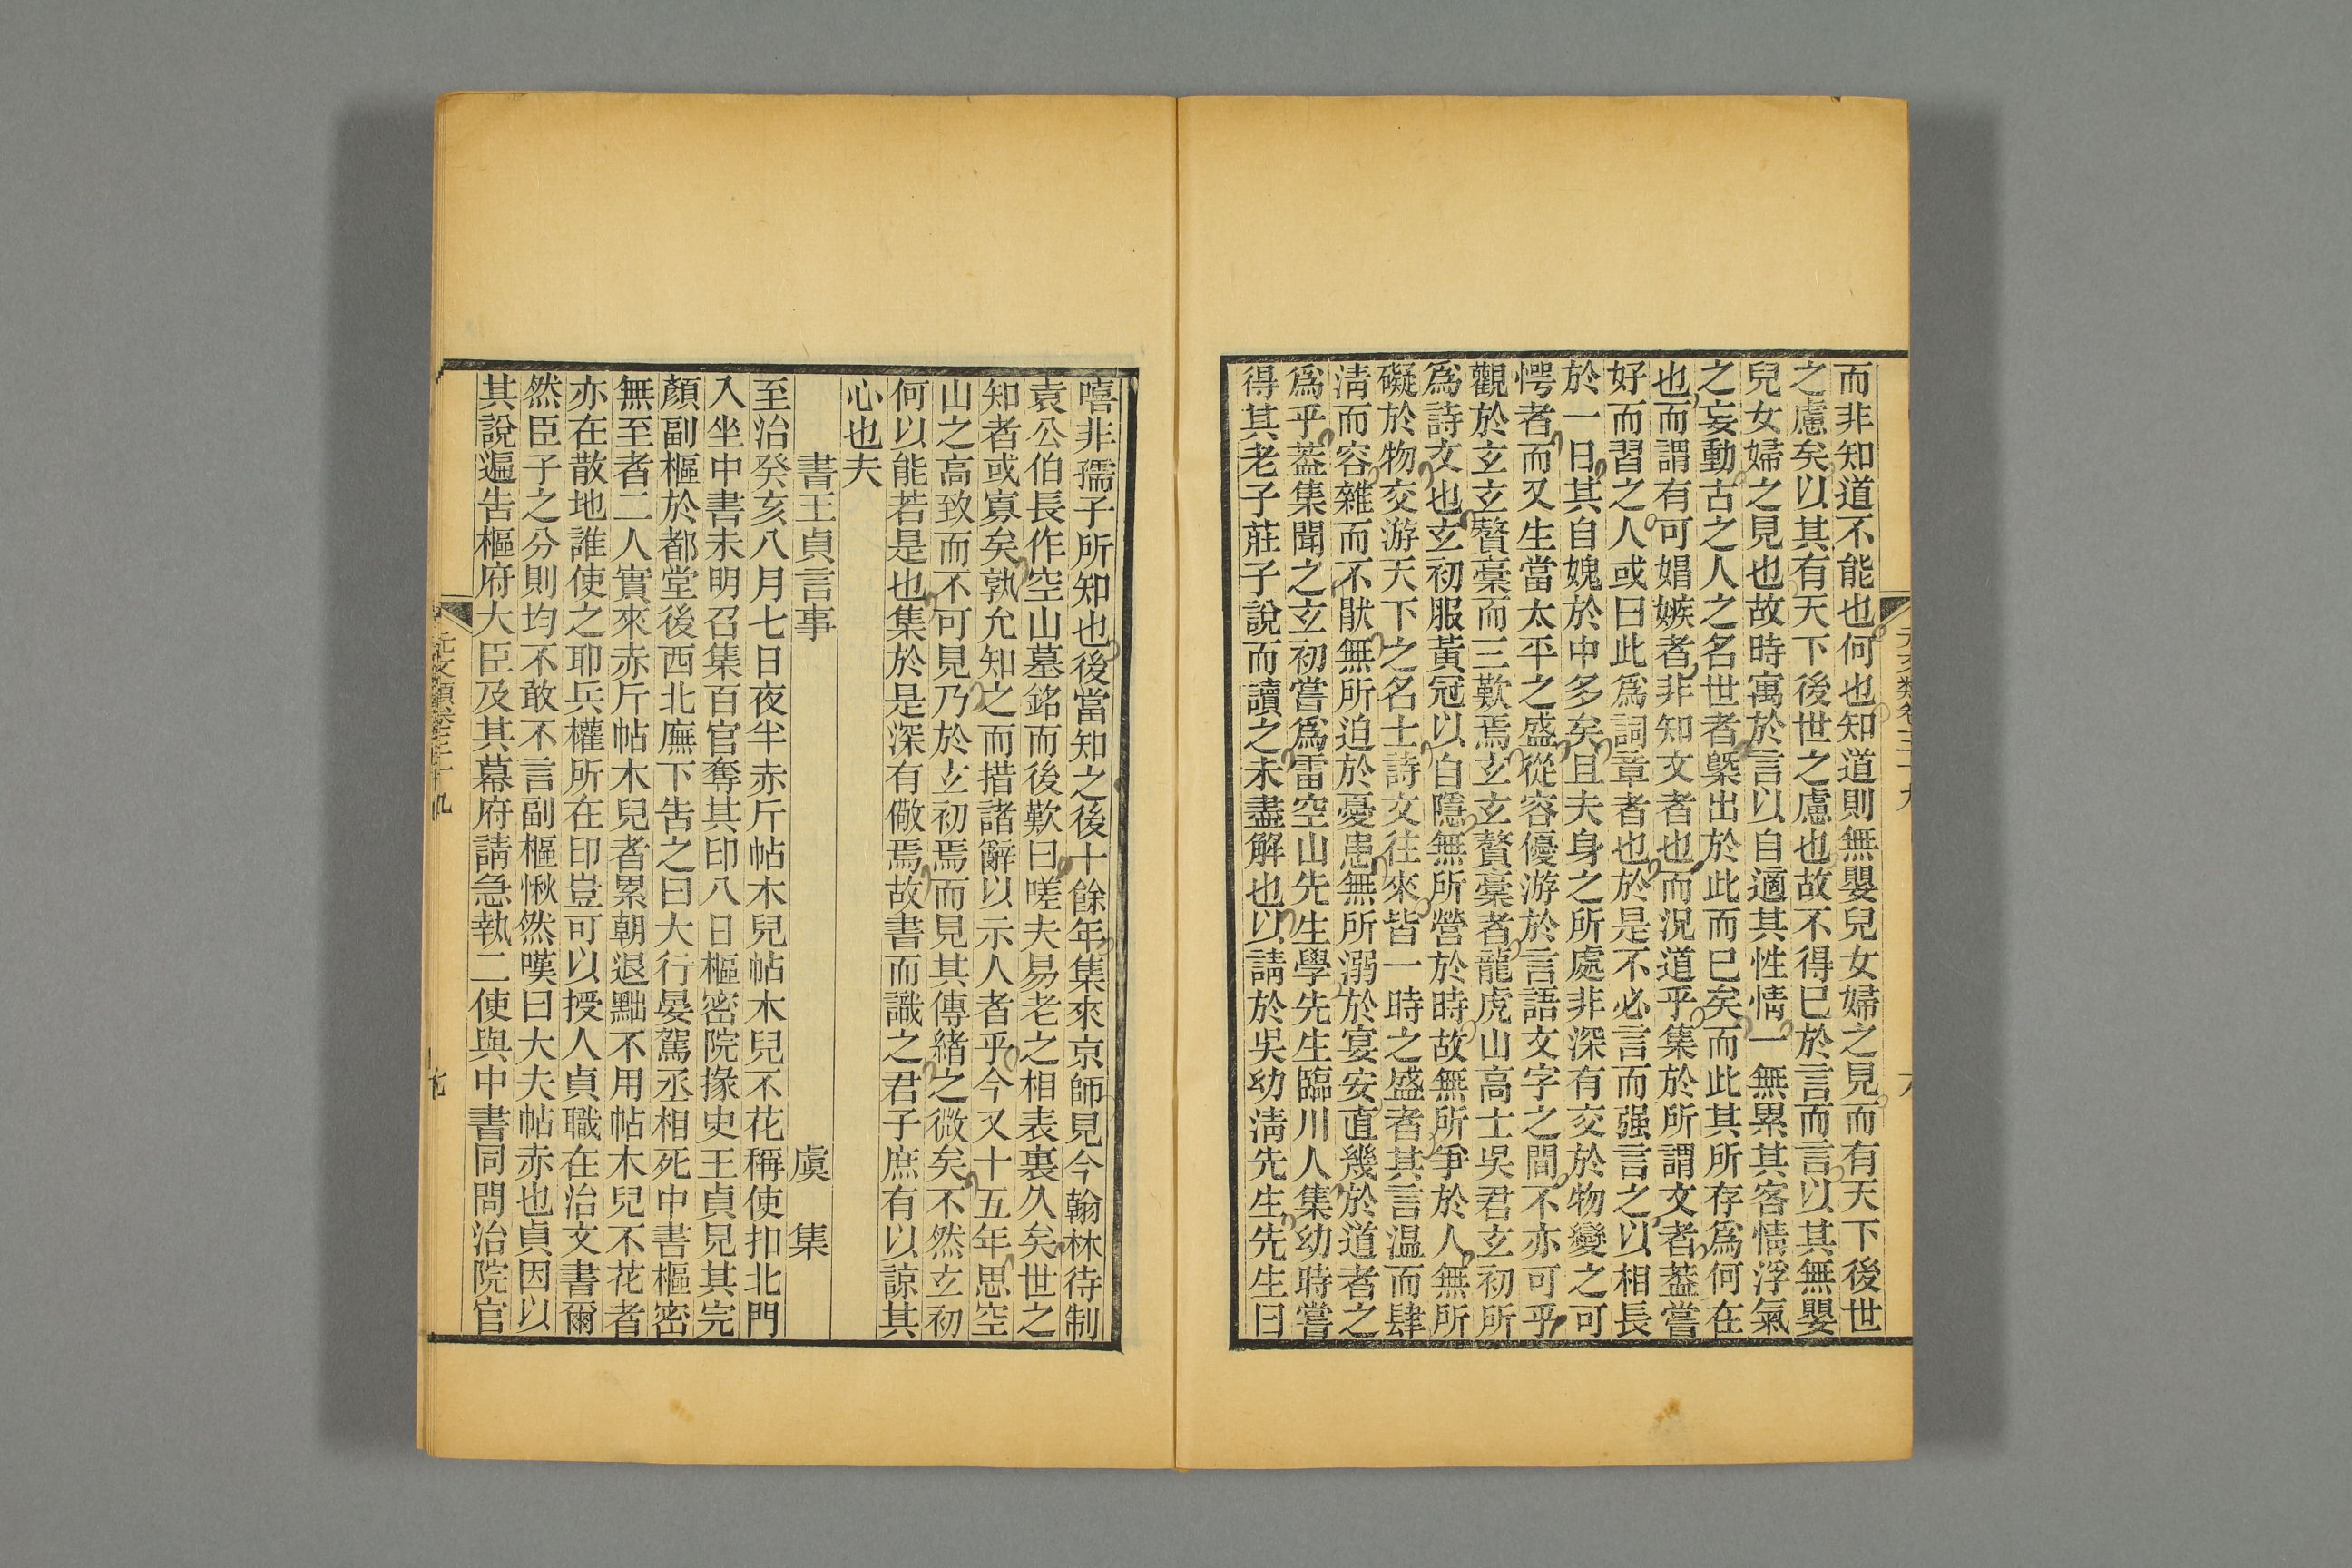 而非知道不能也何也知道則無嬰兒女婦之見而有天下後世
之慮矣以其有天下後世之慮也故不得已於言而言以其無嬰
兒女婦之見也故時寓於言以自適其性情一無累其客情浮氣
之妄動古之人之名世者槩出於此而已矣而此其所存爲何在
也而謂有可娼嫉者非知文者也而況道乎集於所謂文者葢嘗
好而習之人或曰此爲詞章者也於是不必言而强言之以相長
於一日其自媿於中多矣且夫身之所處非深有交於物變之可
愕者而又生當太平之盛從容優游於言語文字之間不亦可乎
觀於玄玄贅稾而三歎焉玄玄贅稾者龍虎山高士吳君玄初所
爲詩文也玄初服黃冠以自隱無所營於時故無所爭於人無所
礙於物交游天下之名士詩文往來皆一時之盛者其言温而肆
淸而容雜而不猒無所迫於憂患無所溺於宴安直幾於道者之
爲乎葢集聞之玄初嘗爲雷空山先生學先生臨川人集幼時嘗
得其老子莊子說而讀之未盡解也以請於吳幼淸先生先生曰
嘻非孺子所知也後當知之後十餘年集來京師見今翰林待制
袁公伯長作空山墓銘而後歎曰嗟夫易老之相表裏久矣世之
知者或寡矣孰允知之而措諸辭以示人者乎今又十五年思空
山之高致而不可見乃於玄初焉而見其傳緒之微矣不然玄初
何以能若是也集於是深有儆焉故書而識之君子庶有以諒其
心也夫
書王貞言事　虞集
至治癸亥八月七日夜半赤斤帖木兒帖木兒不花稱使扣北門
入坐中書未明召集百官奪其印八日樞密院掾史王貞見其完
顏副樞於都堂後西北廡下告之曰大行晏駕丞相死中書樞密
無至者二人實來赤斤帖木兒者累朝退黜不用帖木兒不花者
亦在散地誰使之耶兵權所在印豈可以授人貞職在治文書爾
然臣子之分則均不敢不言副樞愀然嘆曰大夫帖赤也貞因以
其說遍告樞府大臣及其幕府請急執二使與中書同問治院官
元文類卷三十九
七